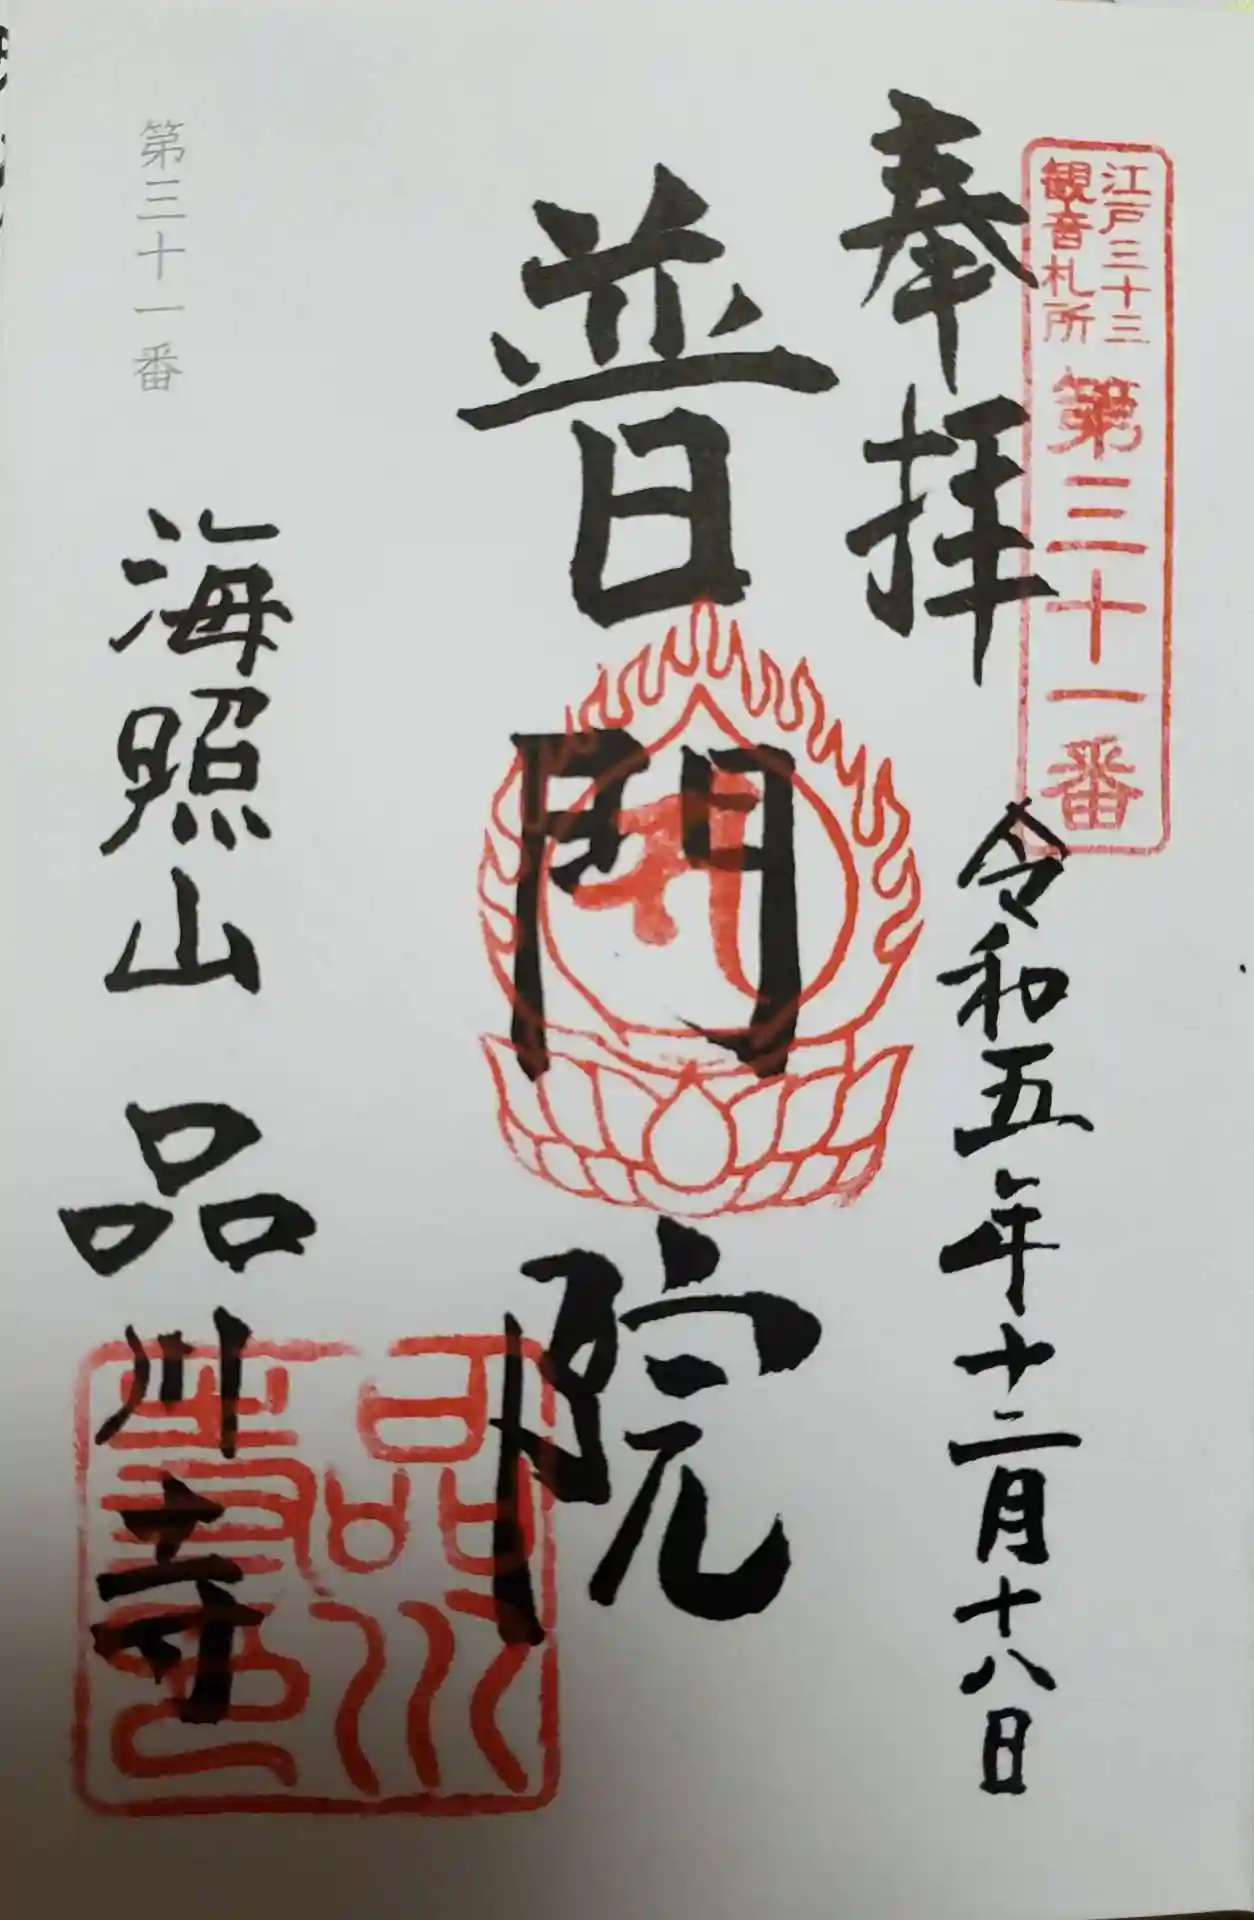 江戸三十三
観音札所
第三十一番
奉拝
令和五年十二月十八日
普門院
第三十一番
海照山 品川寺